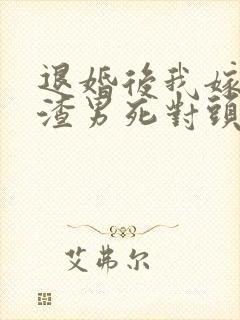 退婚後我嫁
渣男死對頭
艾弗尔